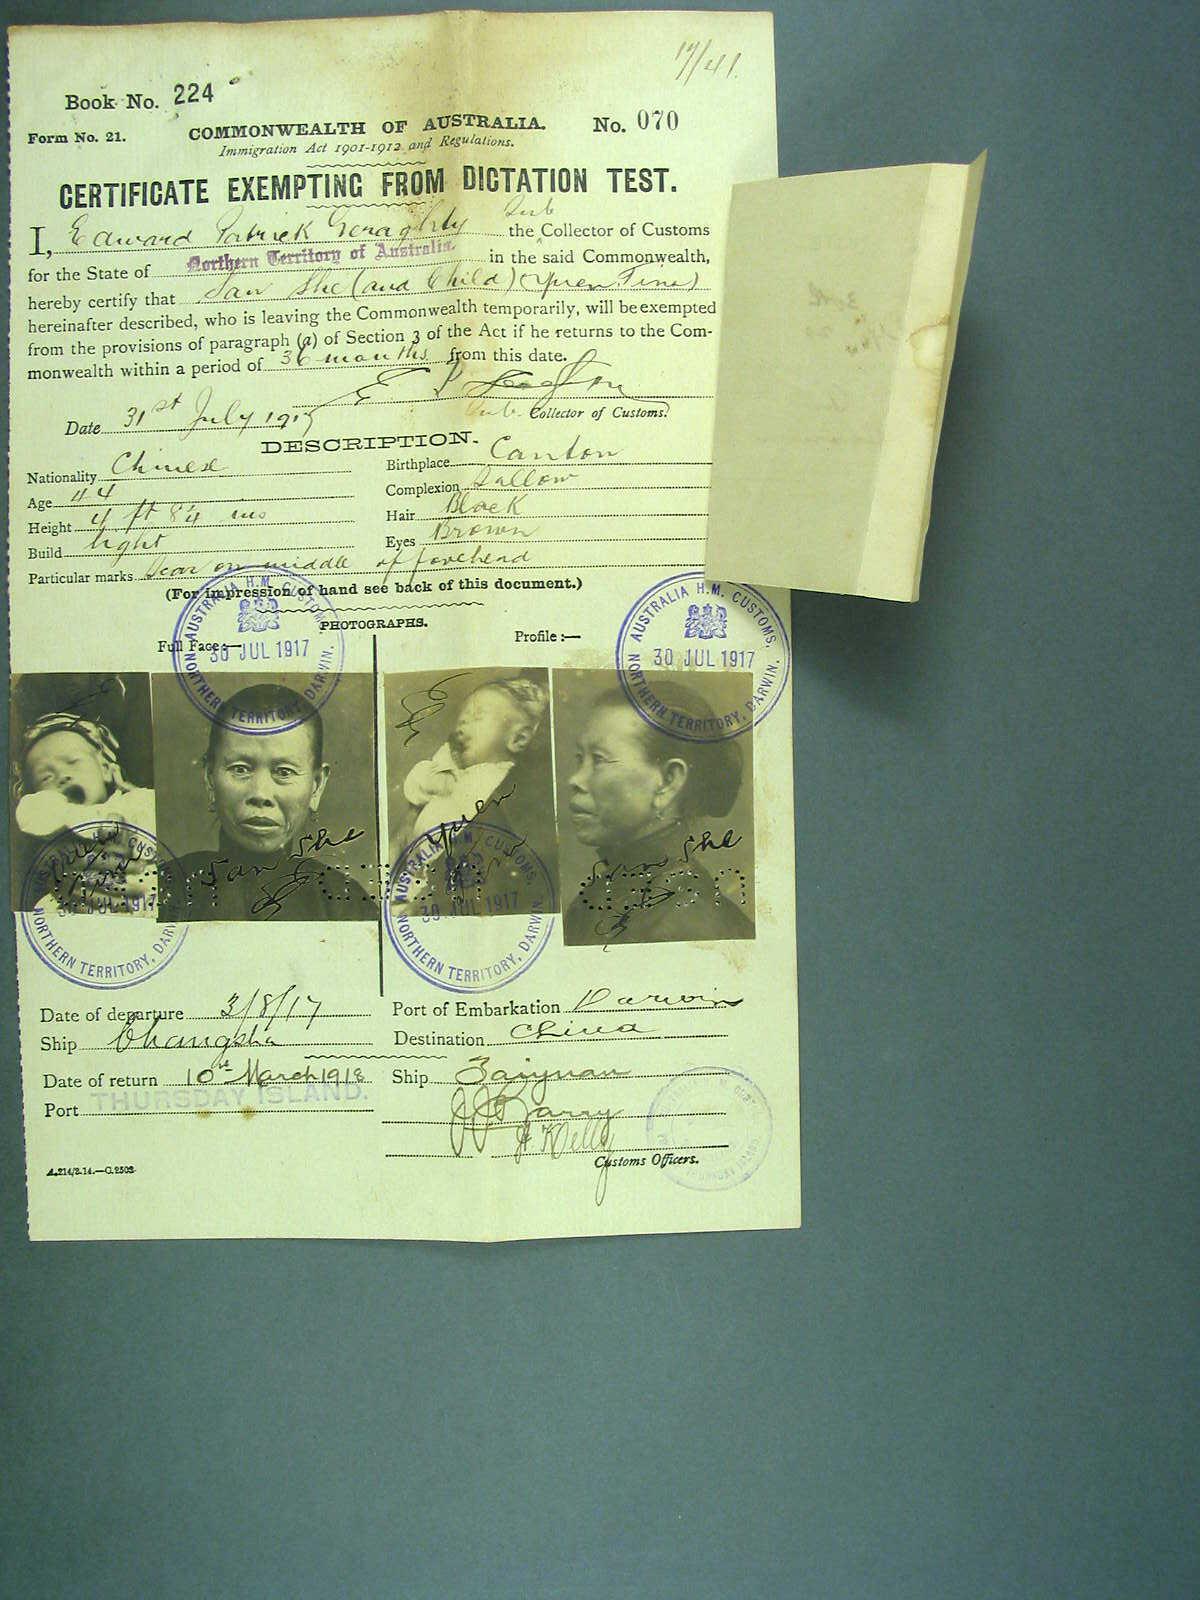 17/41.
Book No. 224
Form No. 21. COMMONWEALTH OF AUSTRALIA. No. 070
Immigration Act 1901-1912 and Regulations.
CERTIFICATE EXEMPTING FROM DICTATION TEST.
Sub
I, Edward Patrick Geraghty the Collector of Customs
for the State of Northern Territory of Australia. in the said Commonwealth,
hereby certify that San She (and Child) (Yuen Fine)
hereinafter described, who is leaving the Commonwealth temporarily, will be exempted
from the provisions of paragraph (a) of Section 3 of the Act if he returns to the Com-
monwealth within a period of 36 months from this date.
Date 31st July 1917 Sub Collector of Customs.
DESCRIPTION.
Nationality Chinese Birthplace Canton
Age 44 Complexion Sallow
Height 4 ft 8¼ ins Hair Black
Build light Eyes Brown
Particular marks Scar on middle of forehead
(For impression of hand see back of this document.)
PHOTOGRAPHS.
Full Face:— Profile:—
AUSTRALIA H.M. CUSTOMS, 30 JUL 1917 NORTHERN TERRITORY, DARWIN.
AUSTRALIA H.M. CUSTOMS, 30 JUL 1917 NORTHERN TERRITORY, DARWIN.
Yuen San She Yuen San She
AUSTRALIA H.M. CUSTOMS, 30 JUL 1917 NORTHERN TERRITORY, DARWIN.
AUSTRALIA H.M. CUSTOMS, 30 JUL 1917 NORTHERN TERRITORY, DARWIN.
Date of departure 3/8/17 Port of Embarkation Darwin
Ship Changsha Destination China
Date of return 10th March 1918 Ship Taiyuan
Port THURSDAY ISLAND. JJ Barry
Kelly
Customs Officers.
A.214/2.14.—C.2503